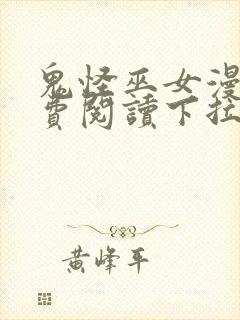 鬼怪巫女漫
費閱讀下拉
黃峰平